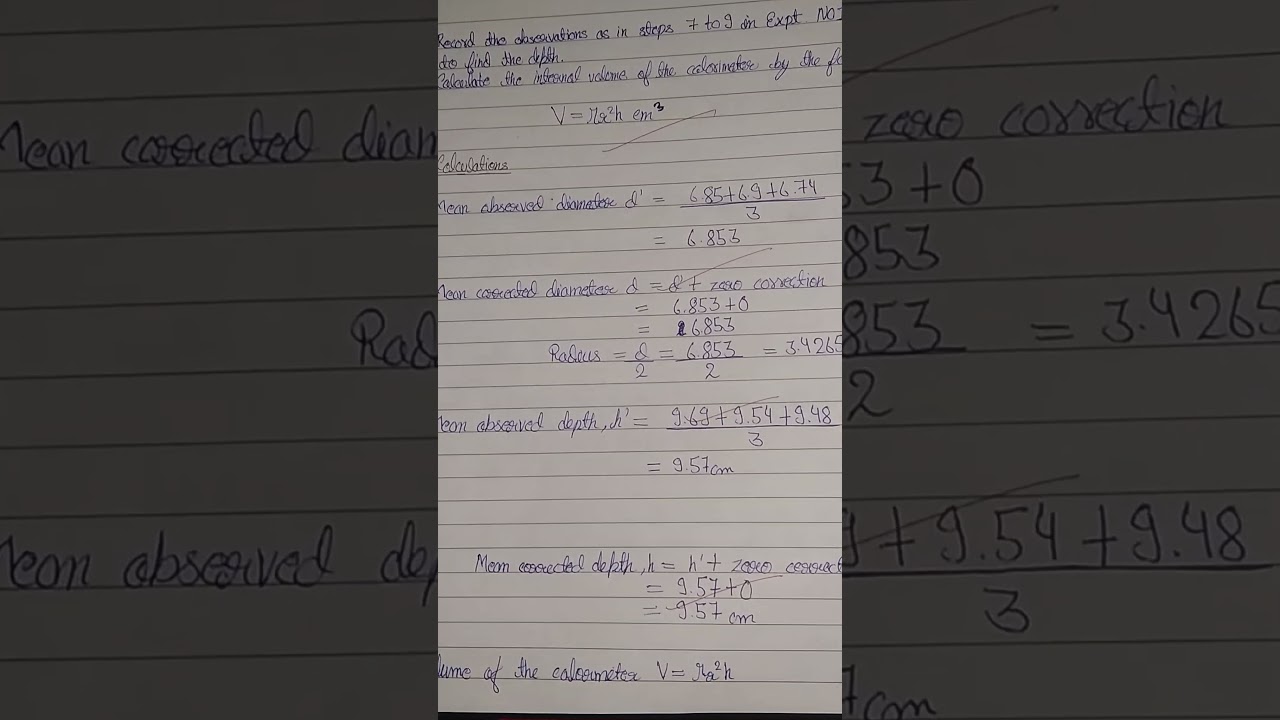 Record the observations as in steps 7 to 9 in Expt No
to find the depth.
Calculate the internal volume of the calorimeter by the
V = πr²h cm³
Calculations
Mean observed diameter d' = 6.85+6.9+6.74 / 3
= 6.853
Mean corrected diameter d = d' + zero correction
= 6.853+0
= 6853
Radius = d/2 = 6.853/2 = 3.4265
Mean observed depth, h' = 9.69+9.54+9.48 / 3
= 9.57cm
Mean corrected depth, h = h' + zero correct
= 9.57+0
= 9.57 cm
lume of the calorimeter V = πr²h